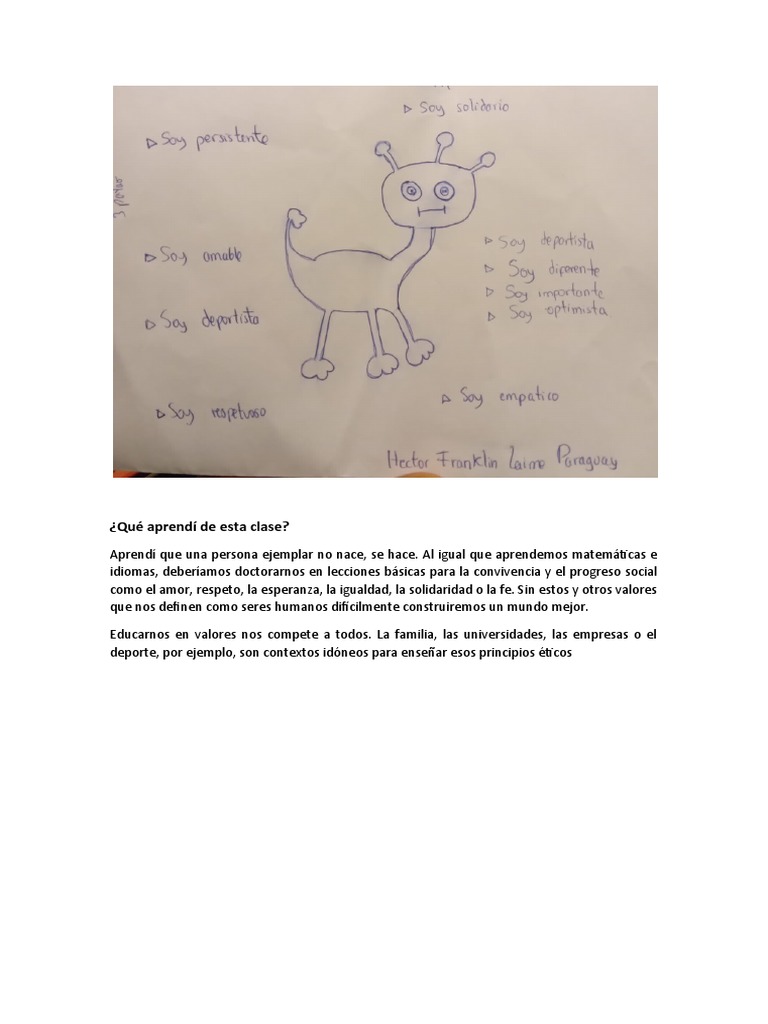 ▷ Soy solidario
▷ Soy persistente
▷ Soy amable
▷ Soy deportista
▷ Soy deportista
▷ Soy diferente
▷ Soy importante
▷ Soy optimista
▷ Soy respetuoso
▷ Soy empatico
Hector Franklin Laime Paraguay
¿Qué aprendí de esta clase?
Aprendí que una persona ejemplar no nace, se hace. Al igual que aprendemos matemáticas e
idiomas, deberíamos doctorarnos en lecciones básicas para la convivencia y el progreso social
como el amor, respeto, la esperanza, la igualdad, la solidaridad o la fe. Sin estos y otros valores
que nos definen como seres humanos difícilmente construiremos un mundo mejor.
Educarnos en valores nos compete a todos. La familia, las universidades, las empresas o el
deporte, por ejemplo, son contextos idóneos para enseñar esos principios éticos